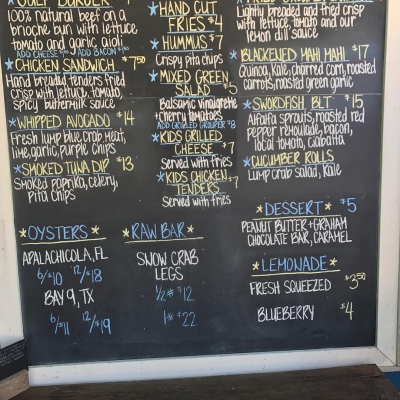 BURGER
100% natural beef on a
brioche bun with lettuce
tomato and garlic aioli
ADD CHEESE ADD BACON
*CHICKEN SANDWICH $7.50
Hand breaded tenders fried
crisp with lettuce, tomato,
spicy buttermilk sauce
*WHIPPED AVOCADO $14
Fresh lump blue crab meat,
lime, garlic, purple chips
*SMOKED TUNA DIP $13
Smoked paprika, celery,
Pita chips
*OYSTERS*
APALACHICOLA, FL
6/$10 12/$18
BAY 9, TX
6/$11 12/$19
*HAND CUT
FRIES $4
*HUMMUS $7
Crispy pita chips
*MIXED GREEN
SALAD $5
Balsamic vinaigrette
+ cherry tomatoes
ADD GRILLED GROUPER $8
*KIDS GRILLED
CHEESE $7
Served with fries
*KIDS CHICKEN
TENDERS $7
Served with fries
*RAW BAR*
SNOW CRAB
LEGS
1/2# $12
1# $22
lightly breaded and fried crisp
with lettuce, tomato and our
lemon dill sauce
*BLACKENED MAHI MAHI $17
Quinoa, kale, charred corn, roasted
carrots, roasted green garlic
*SWORDFISH BLT $15
Alfalfa sprouts, roasted red
pepper remoulade, bacon,
local tomato, ciabatta
*CUCUMBER ROLLS
Lump crab salad, kale
*DESSERT* $5
PEANUT BUTTER + GRAHAM
CHOCOLATE BAR, CARAMEL
*LEMONADE*
FRESH SQUEEZED $3.50
BLUEBERRY $4